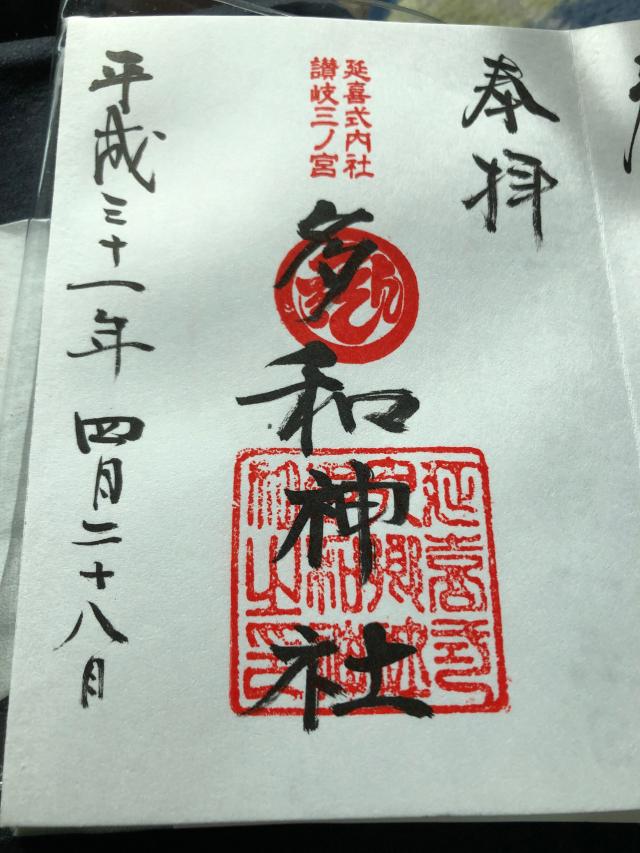 奉拝
延喜式内社
讃岐三ノ宮
多和神社
平成三十一年 四月二十八日